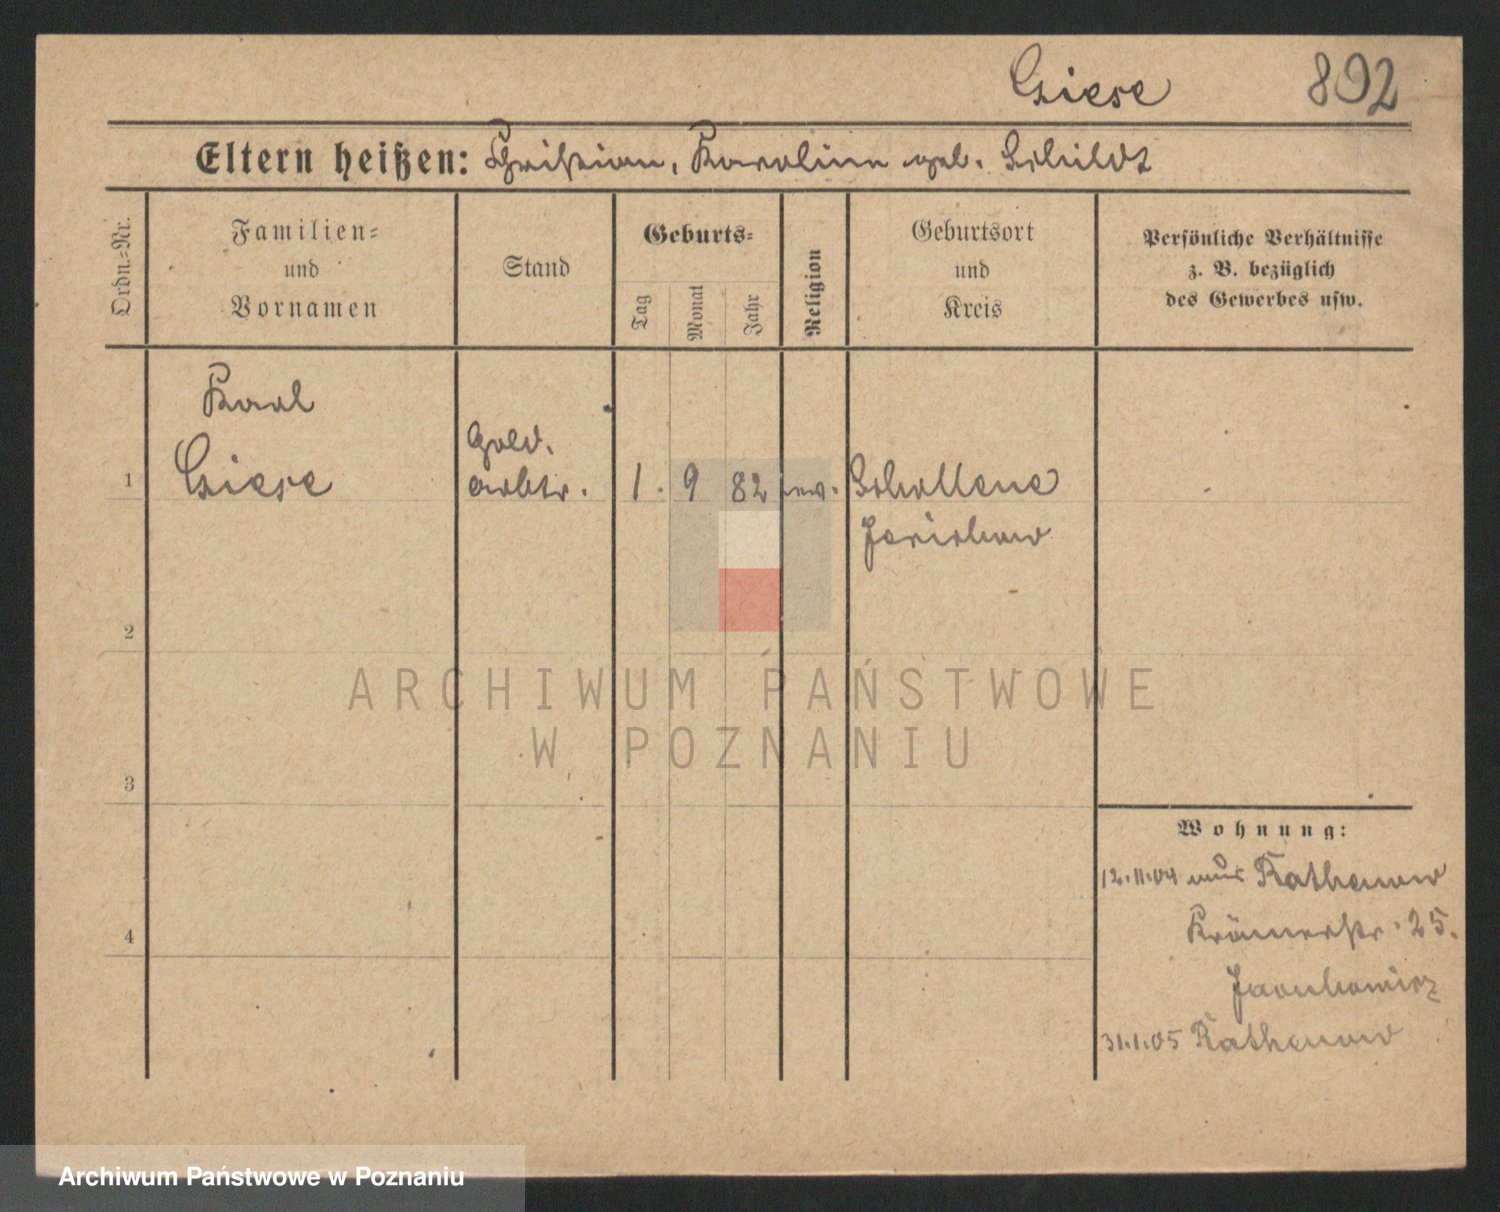 Giese 892
Eltern heißen: Christian, Karoline geb. Schildt
Ordn.-Nr.
Familien-
und
Vornamen
Stand
Geburts-
Tag
Monat
Jahr
Religion
Geburtsort
und
Kreis
Persönliche Verhältnisse
z. B. bezüglich
des Gewerbes usw.
Karl
Gold.
1 Giese arbtr. 1. 9 82 ev. Schollene
Jerichow
2
3
4
Wohnung:
12.11.04 aus Rathenow
Krämerstr. 25.
31.1.05 Rathenow
ARCHIWUM PAŃSTWOWE
W POZNANIU
Archiwum Państwowe w Poznaniu